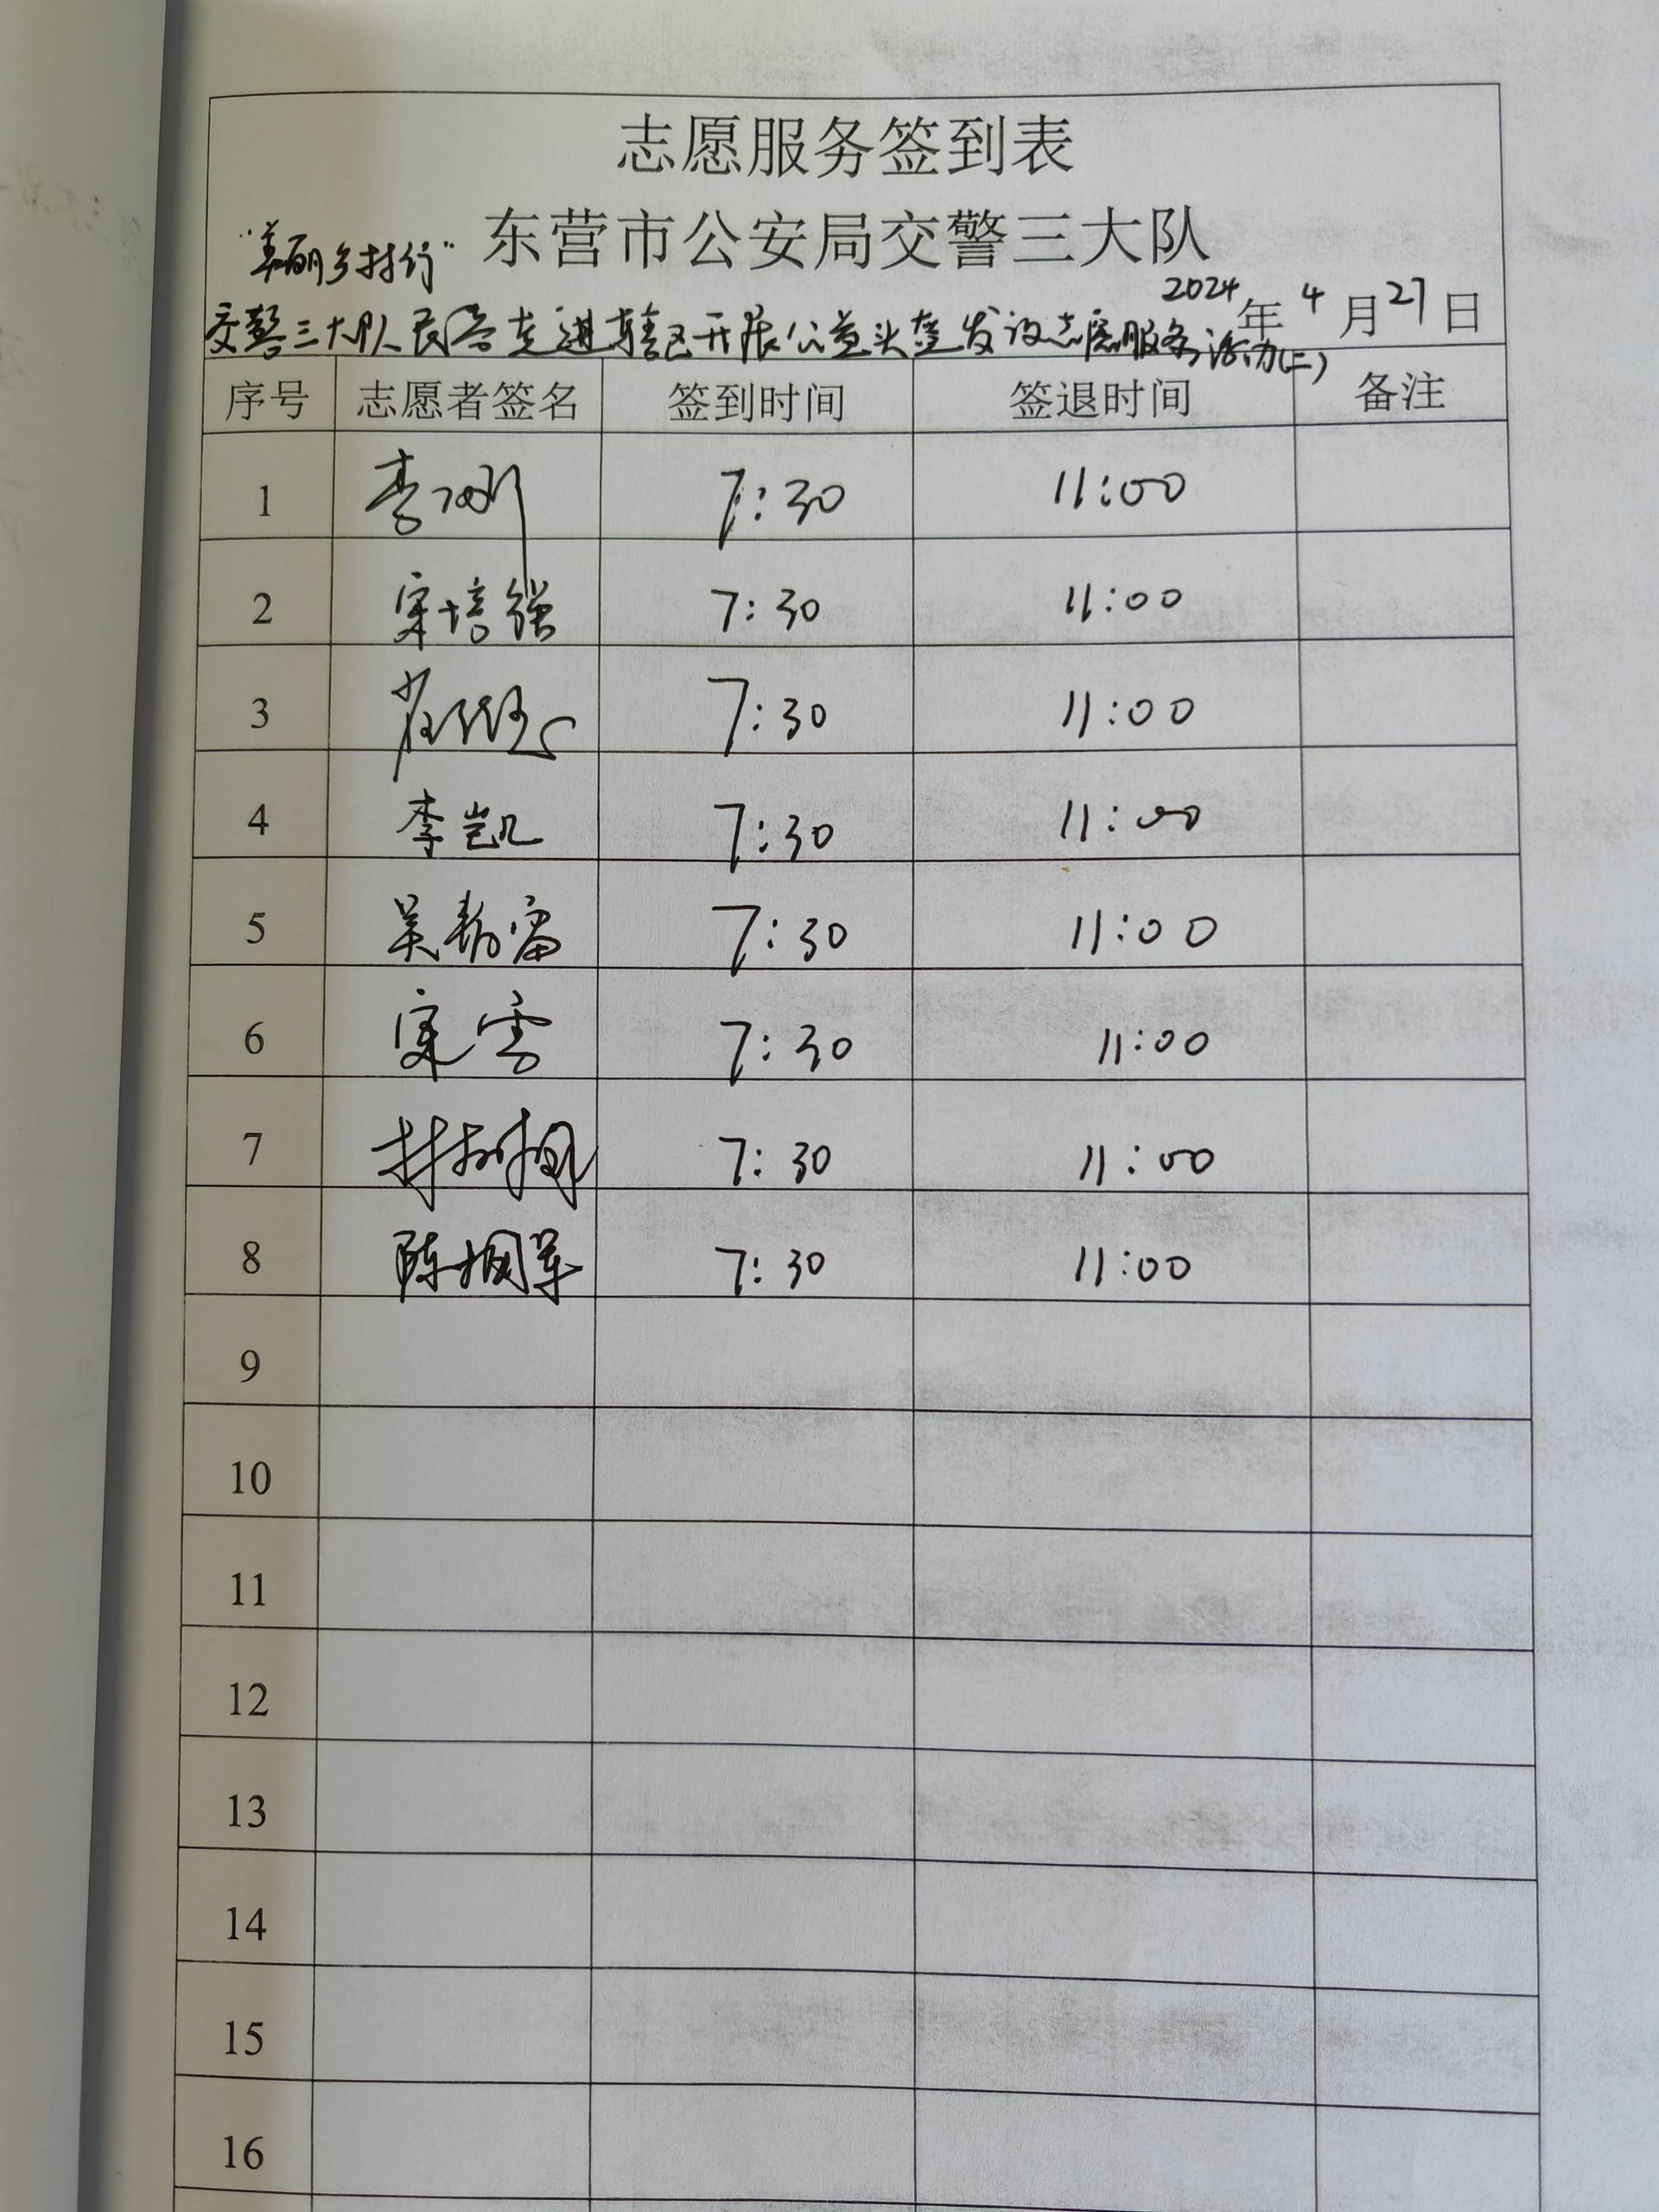 志愿服务签到表
东营市公安局交警三大队
"美丽乡村行"
2024年4月27日
交警三大队民警走进辖区开展公益头盔发放志愿服务活动(二)
序号 志愿者签名 签到时间 签退时间 备注
1 李刚 7:30 11:00
2 宋培强 7:30 11:00
3 7:30 11:00
4 李凯 7:30 11:00
5 吴 雷 7:30 11:00
6 宋雪 7:30 11:00
7 7:30 11:00
8 陈 军 7:30 11:00
9
10
11
12
13
14
15
16